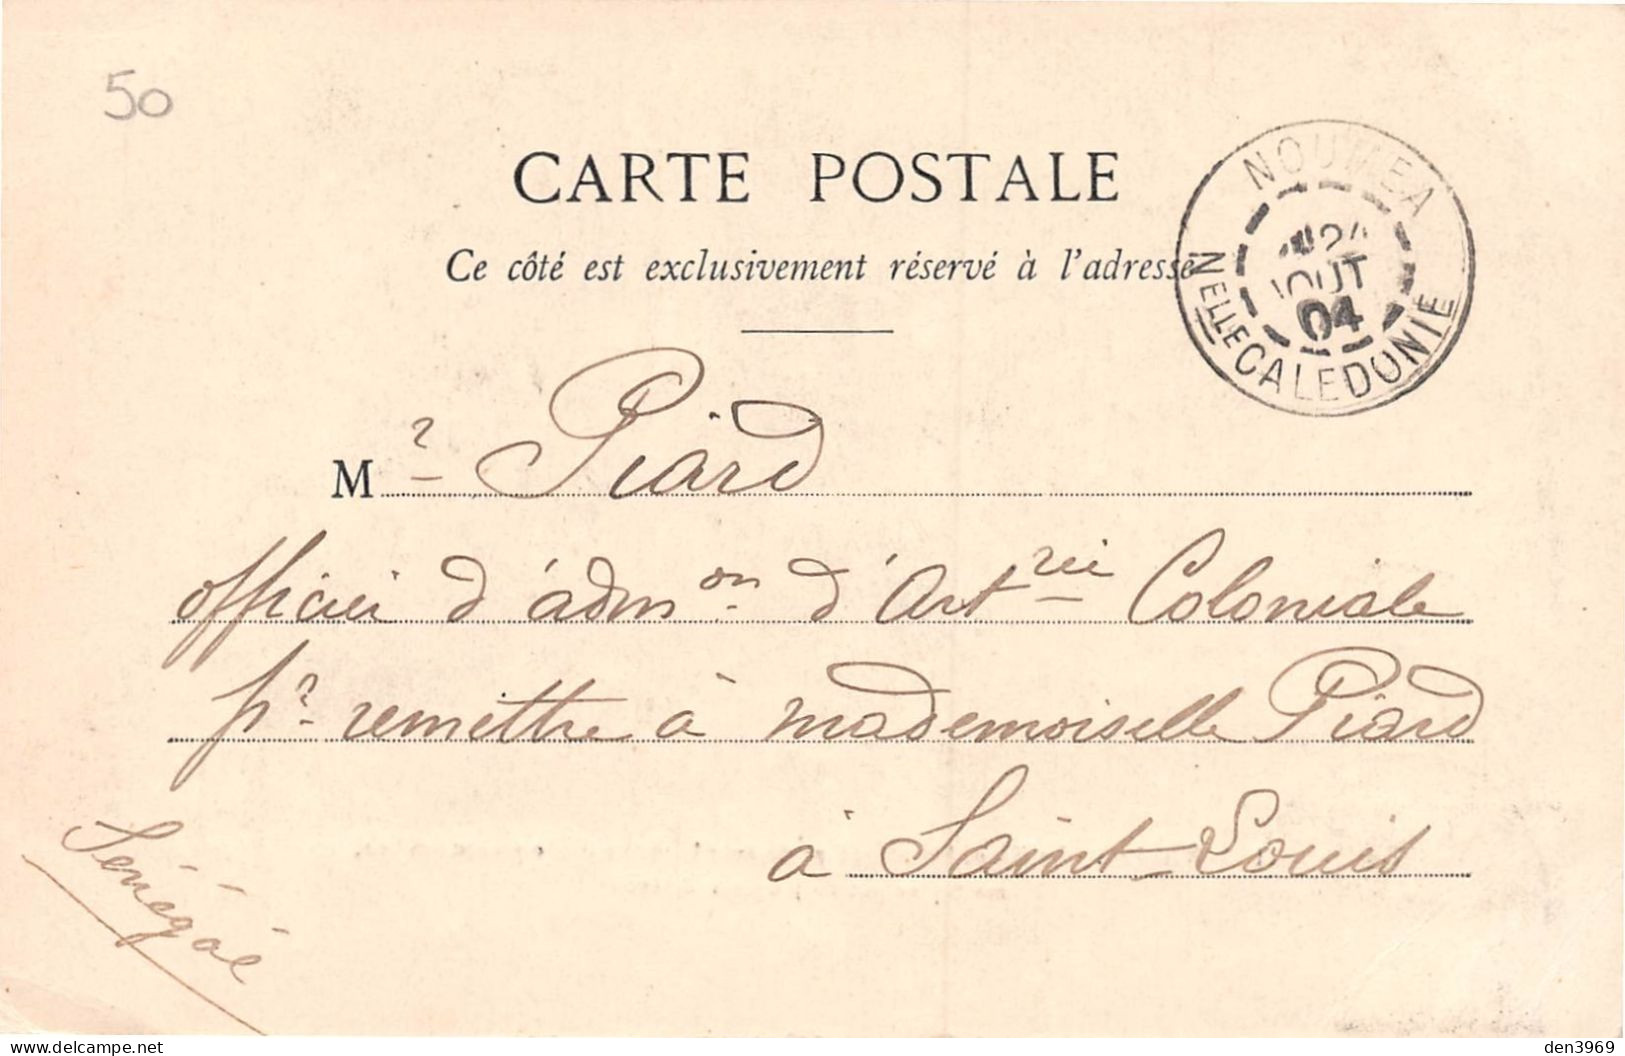 50
CARTE POSTALE
Ce côté est exclusivement réservé à l'adresse
NOUMEA
AOUT
04
NELLE CALEDONIE
Mr Piard
officier d'admon d'Artrie Coloniale
pr remettre à mademoiselle Piard
à Saint-Louis
Sénégal
delcampe.net
den3969